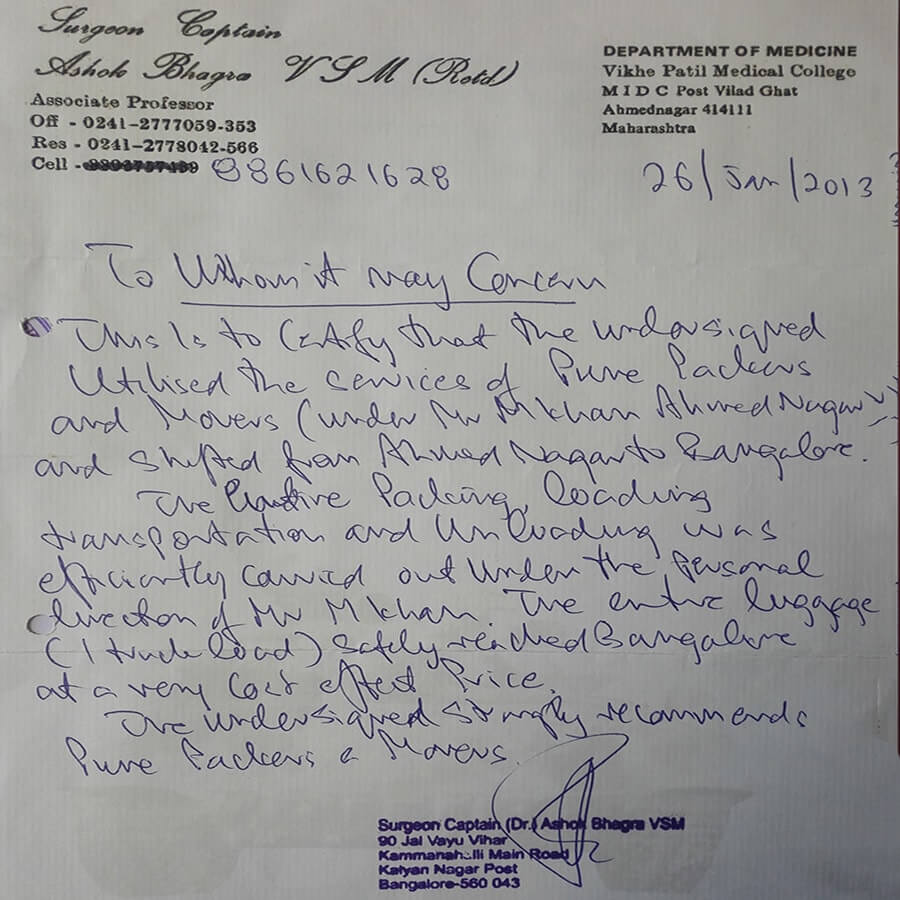 Surgeon Captain
Ashok Bhagra VSM (Retd)
Associate Professor
Off - 0241-2777059-353
Res - 0241-2778042-566
Cell - 8861621628
DEPARTMENT OF MEDICINE
Vikhe Patil Medical College
M I D C Post Vilad Ghat
Ahmednagar 414111
Maharashtra
26/Jan/2013
To Whom it may Concern
This Is to Certify that the undersigned
Utilised the services of Pune Packers
and Movers (under Mr M Khan Ahmed Nagar)
and Shifted from Ahmed Nagar to Bangalore.
The Packing, loading
transportation and Unloading was
efficiently carried out Under the personal
direction of Mr M Khan. The entire luggage
(1 truck load) Safely reached Bangalore
at a very Cost effect Price.
The undersigned strongly recommends
Pune Packers & Movers.
Surgeon Captain (Dr.) Ashok Bhagra VSM
90 Jal Vayu Vihar
Kammanahalli Main Road
Kalyan Nagar Post
Bangalore-560 043